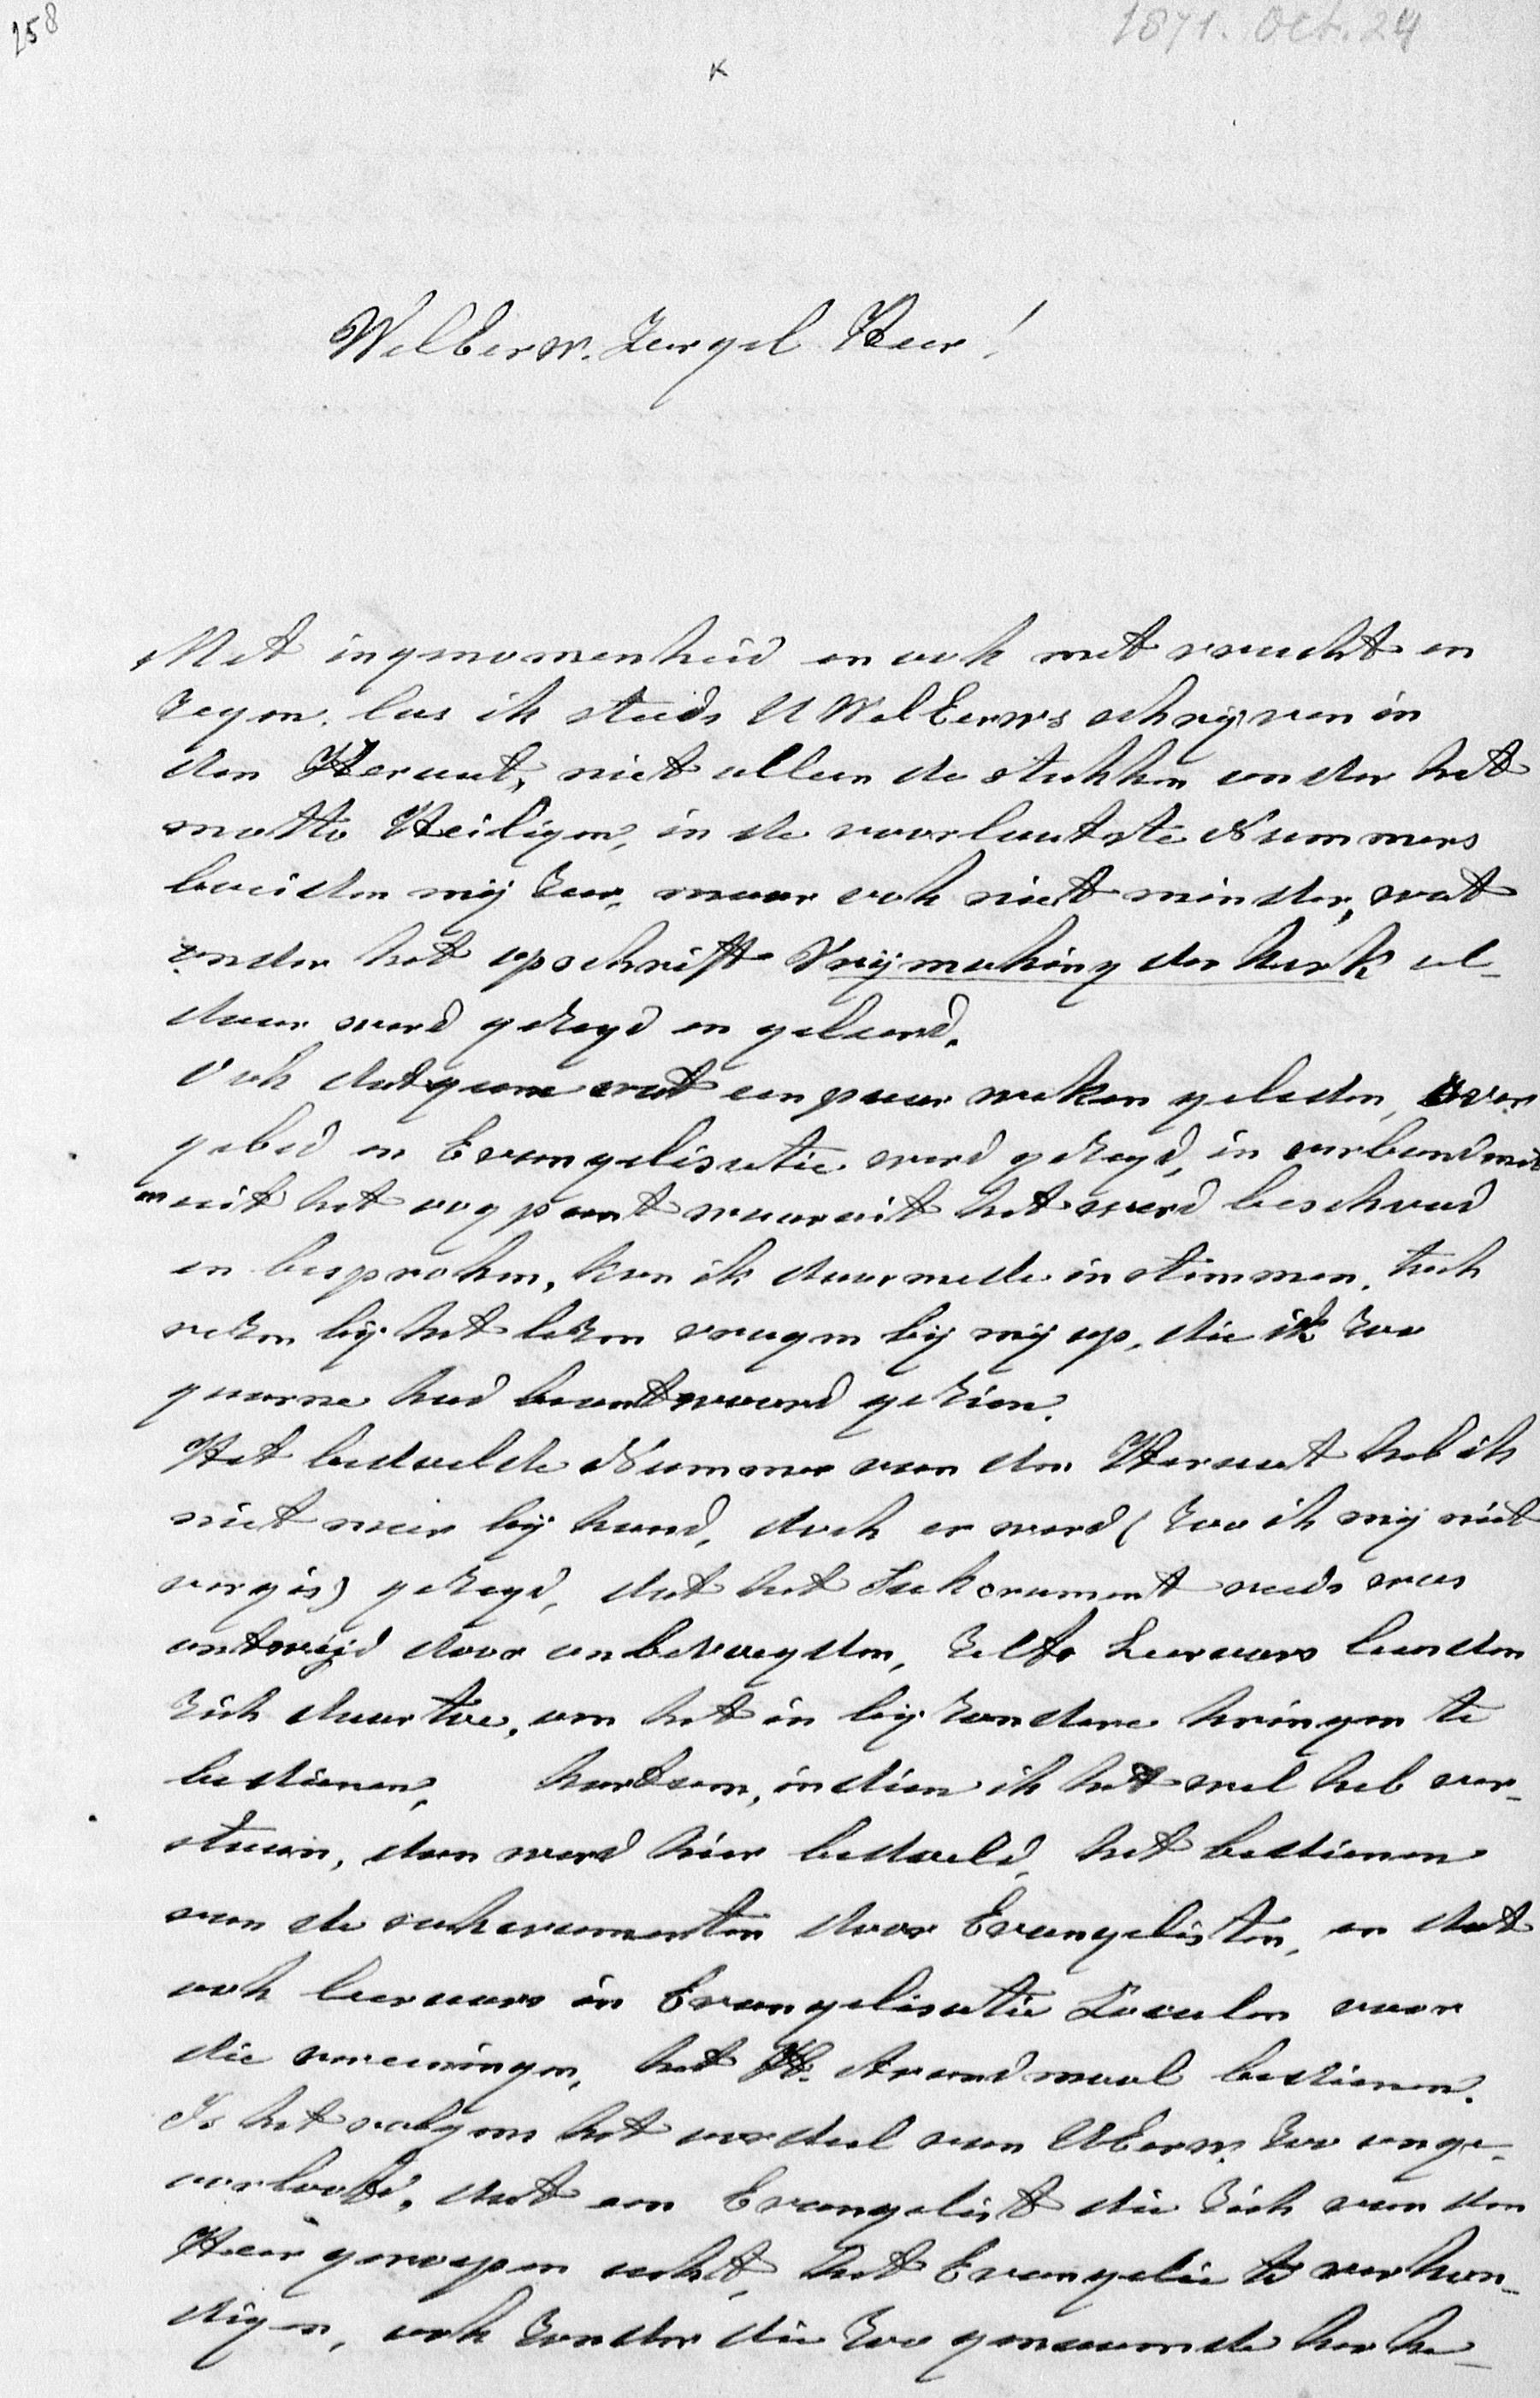 258
1871. Oct. 24
x
WelEerw. Zeergel Heer!
Met ingenomenheid en ook met vrucht en
zegen. las ik steeds UWelEerws schrijven in
den Heraut, niet alleen de stukken onder het
motto Heiligen, in de voorlaatste Nummers
boeiden mij zeer, maar ook niet minder, wat
onder het opschrift Vrijmaking der kerk al-
daar werd gezegd en geleerd.
Ook datgene wat een paar weken geleden, over
gebed en Evangelisatie werd gezegd, in verband met
en uit het oogpunt waaruit het werd beschoud
en besproken, kon ik daarmede instemmen, toch
rezen bij het lezen vragen bij mij op, die ik zoo
gaarne had beantwoord gezien.
Het bedoelde Nummer van den Heraut heb ik
niet meer bij hand, doch er werd (zoo ik mij niet
vergis) gezegd, dat het Sakrament reeds was
ontwijd door onbevoegden, zelfs Leeraars leenden
zich daartoe, om het in bijzondere kringen te
bedienen, kortom, indien ik het wel heb ver-
staan, dan werd hier bedoeld, het bedienen
van de sakramenten door Evangelisten, en dat
ook leeraars in Evangelisatie Localen voor
die vereeningen, het H. Avondmaal bedienen.
Is het volgens het oordeel van UEerw. zoo onge-
oorloofd, dat een Evangelist die zich van den
Heer geroepen acht, het Evangelie te verkon-
digen, ook zonder die zoo genaamde kerke-